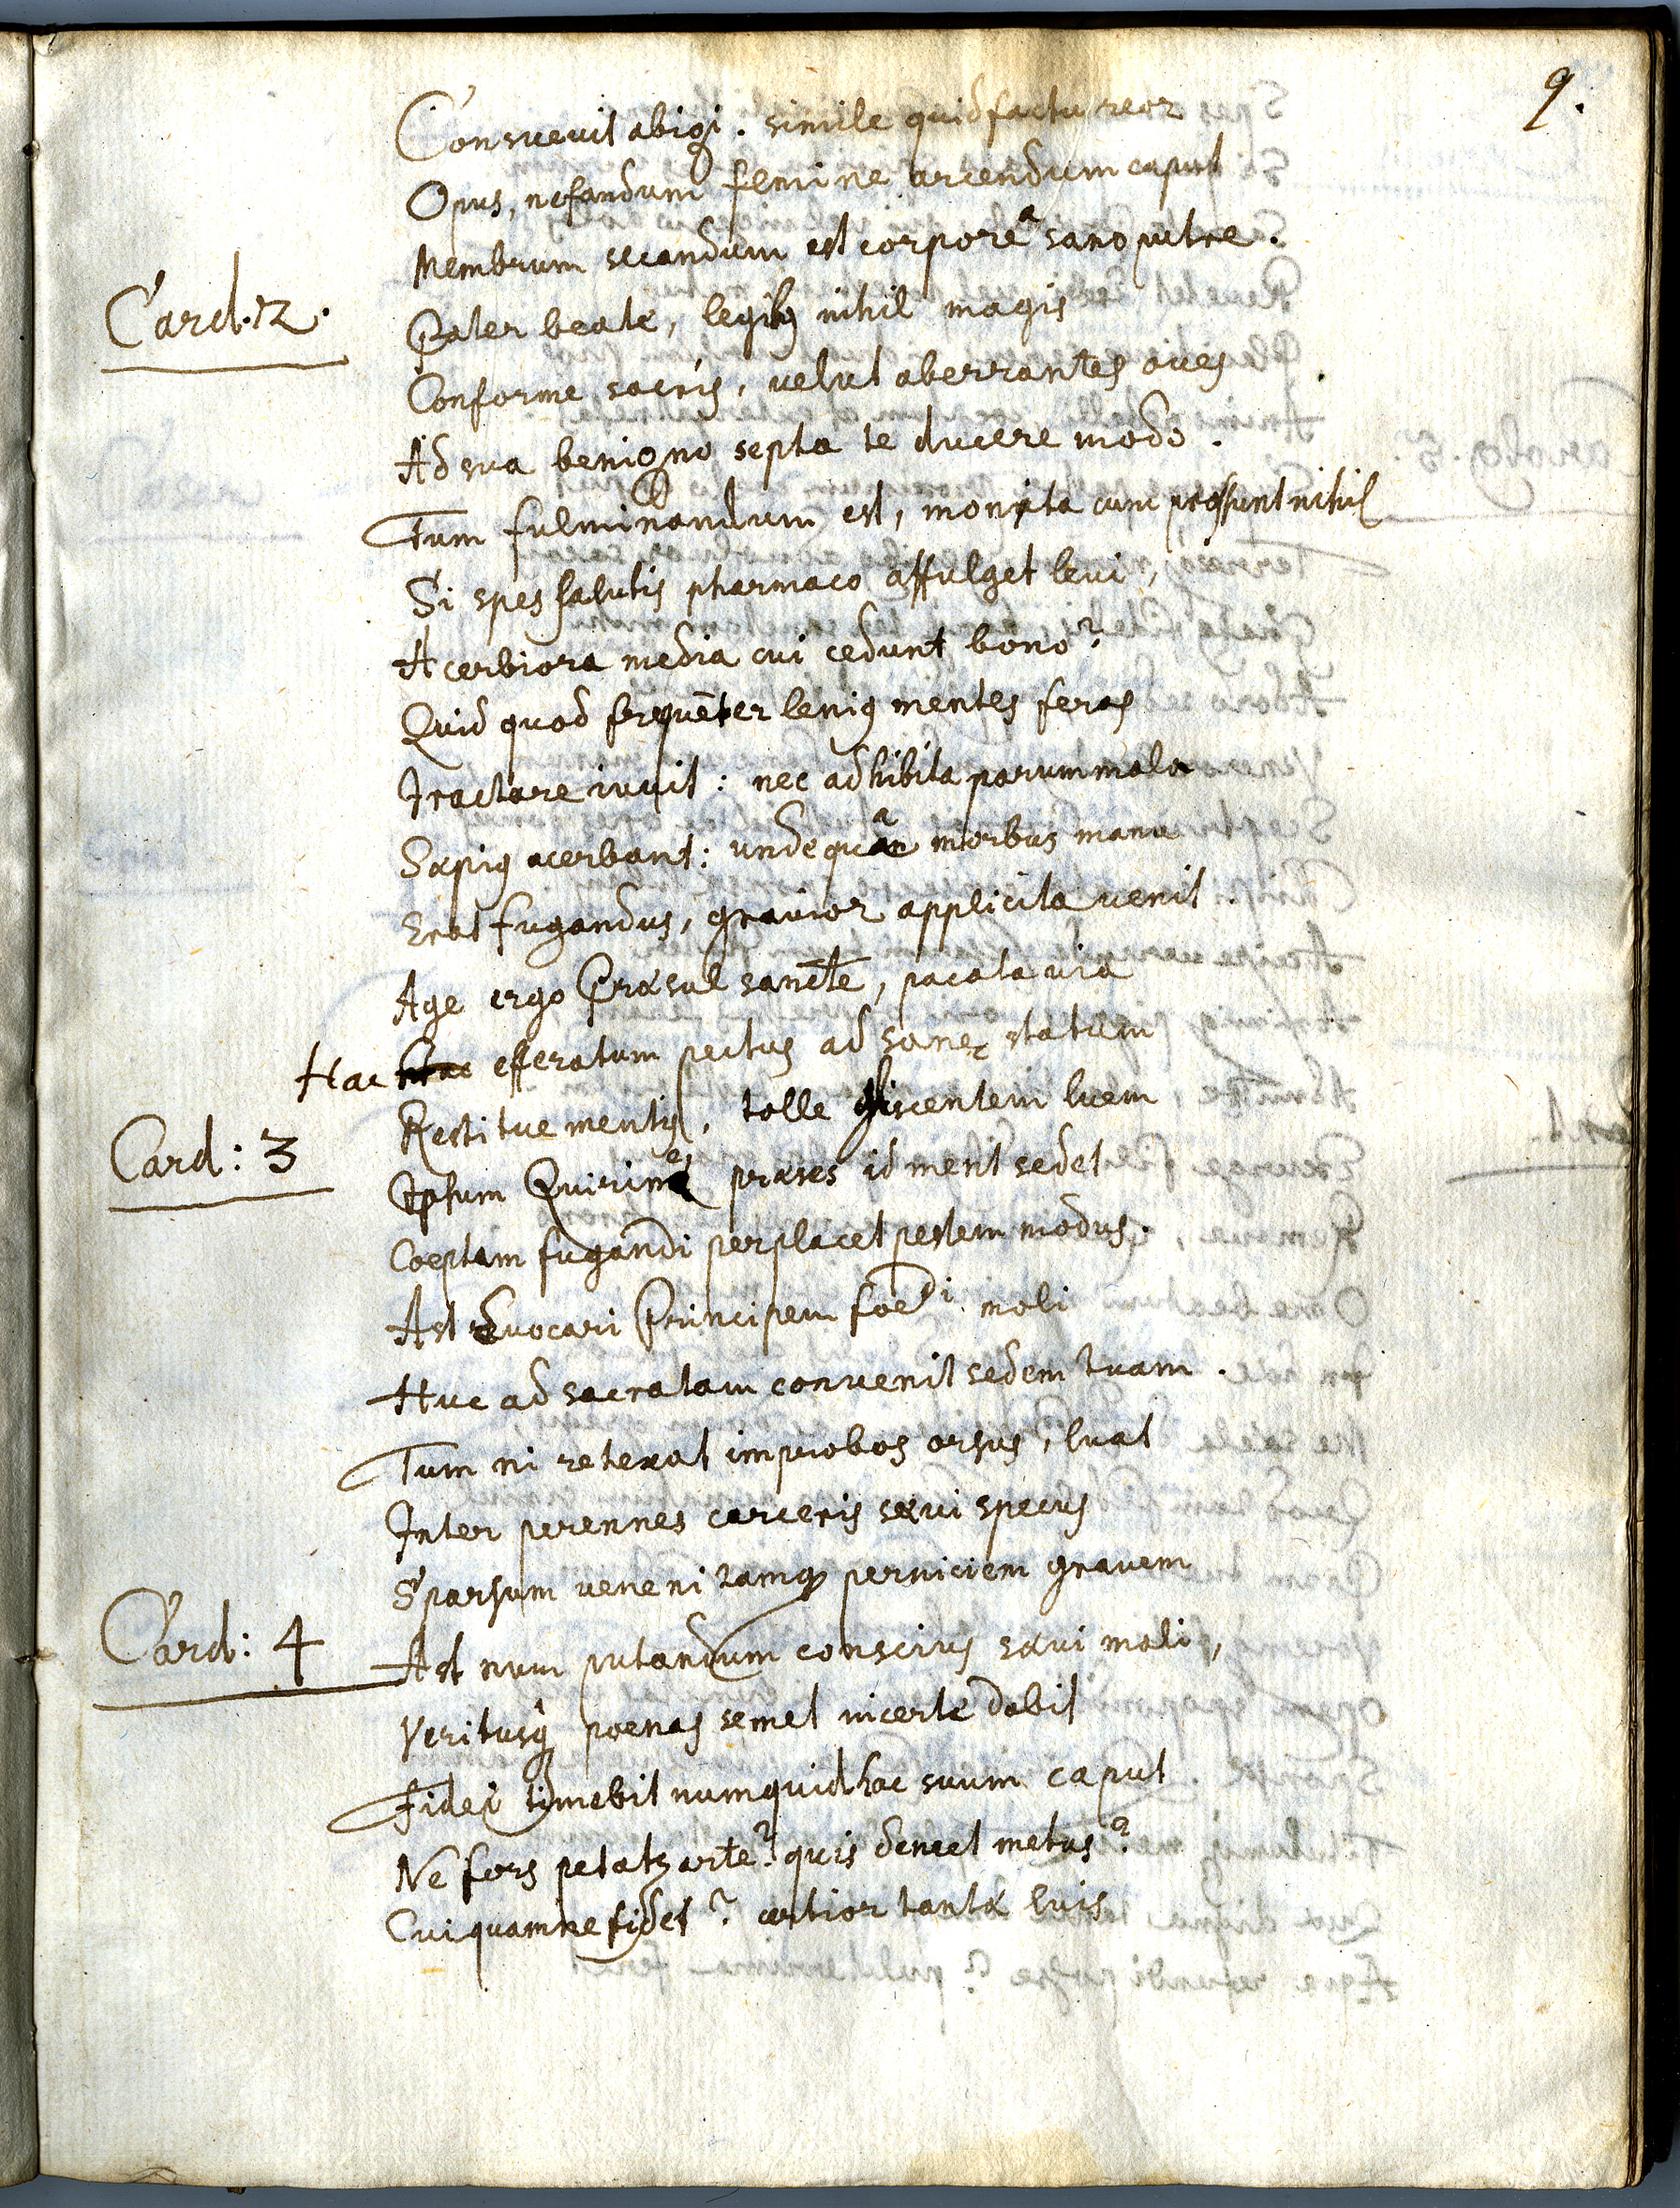 9.
Consuevit abigi. simile quid factu reor
Opus, nefandum femine arcendum caput
Membrum secandum est corpore a sano putre.
Card. 12.
Pater beate, legibus nihil magis
Conforme sacris, velut aberrantes oves
Ad sua benigno septa te ducere modo.
Tum fulminandum est, monita cum prosunt nihil
Si spes salutis pharmaco affulget levi,
Acerbiora media cui cedunt bono?
Quid quod frequēter lenius mentes feras
Tractare iuvit: nec adhibita parum mala
Sæpius acerbant: unde qua morbus manu
Erat fugandus, gravior applicita venit.
Age ergo Præsul sancte, pacata via
Hac efferatum pectus ad sanæ statum
Restitue mentis, tolle gliscentem luem
Card: 3
Ipsum Quirine præses id menti sedet
Coeptam fugandi perplacet pestem modus.
Ast evocari Principem foedi mali
Huc ad sacratam convenit sedem tuam.
Tum ni retexat improbos orsus, luat
Inter perennes carceris sævi specus
Sparsum veneni tamq perniciem gravem
Card: 4
Ast num putandum conscius sævi mali,
Veritusq poenas semet incertæ dabit
Fidei timebit numquid hac suum caput
Ne fors petatur arte? quis demet metus?
Cuiquamne fidet? certior tantæ luis